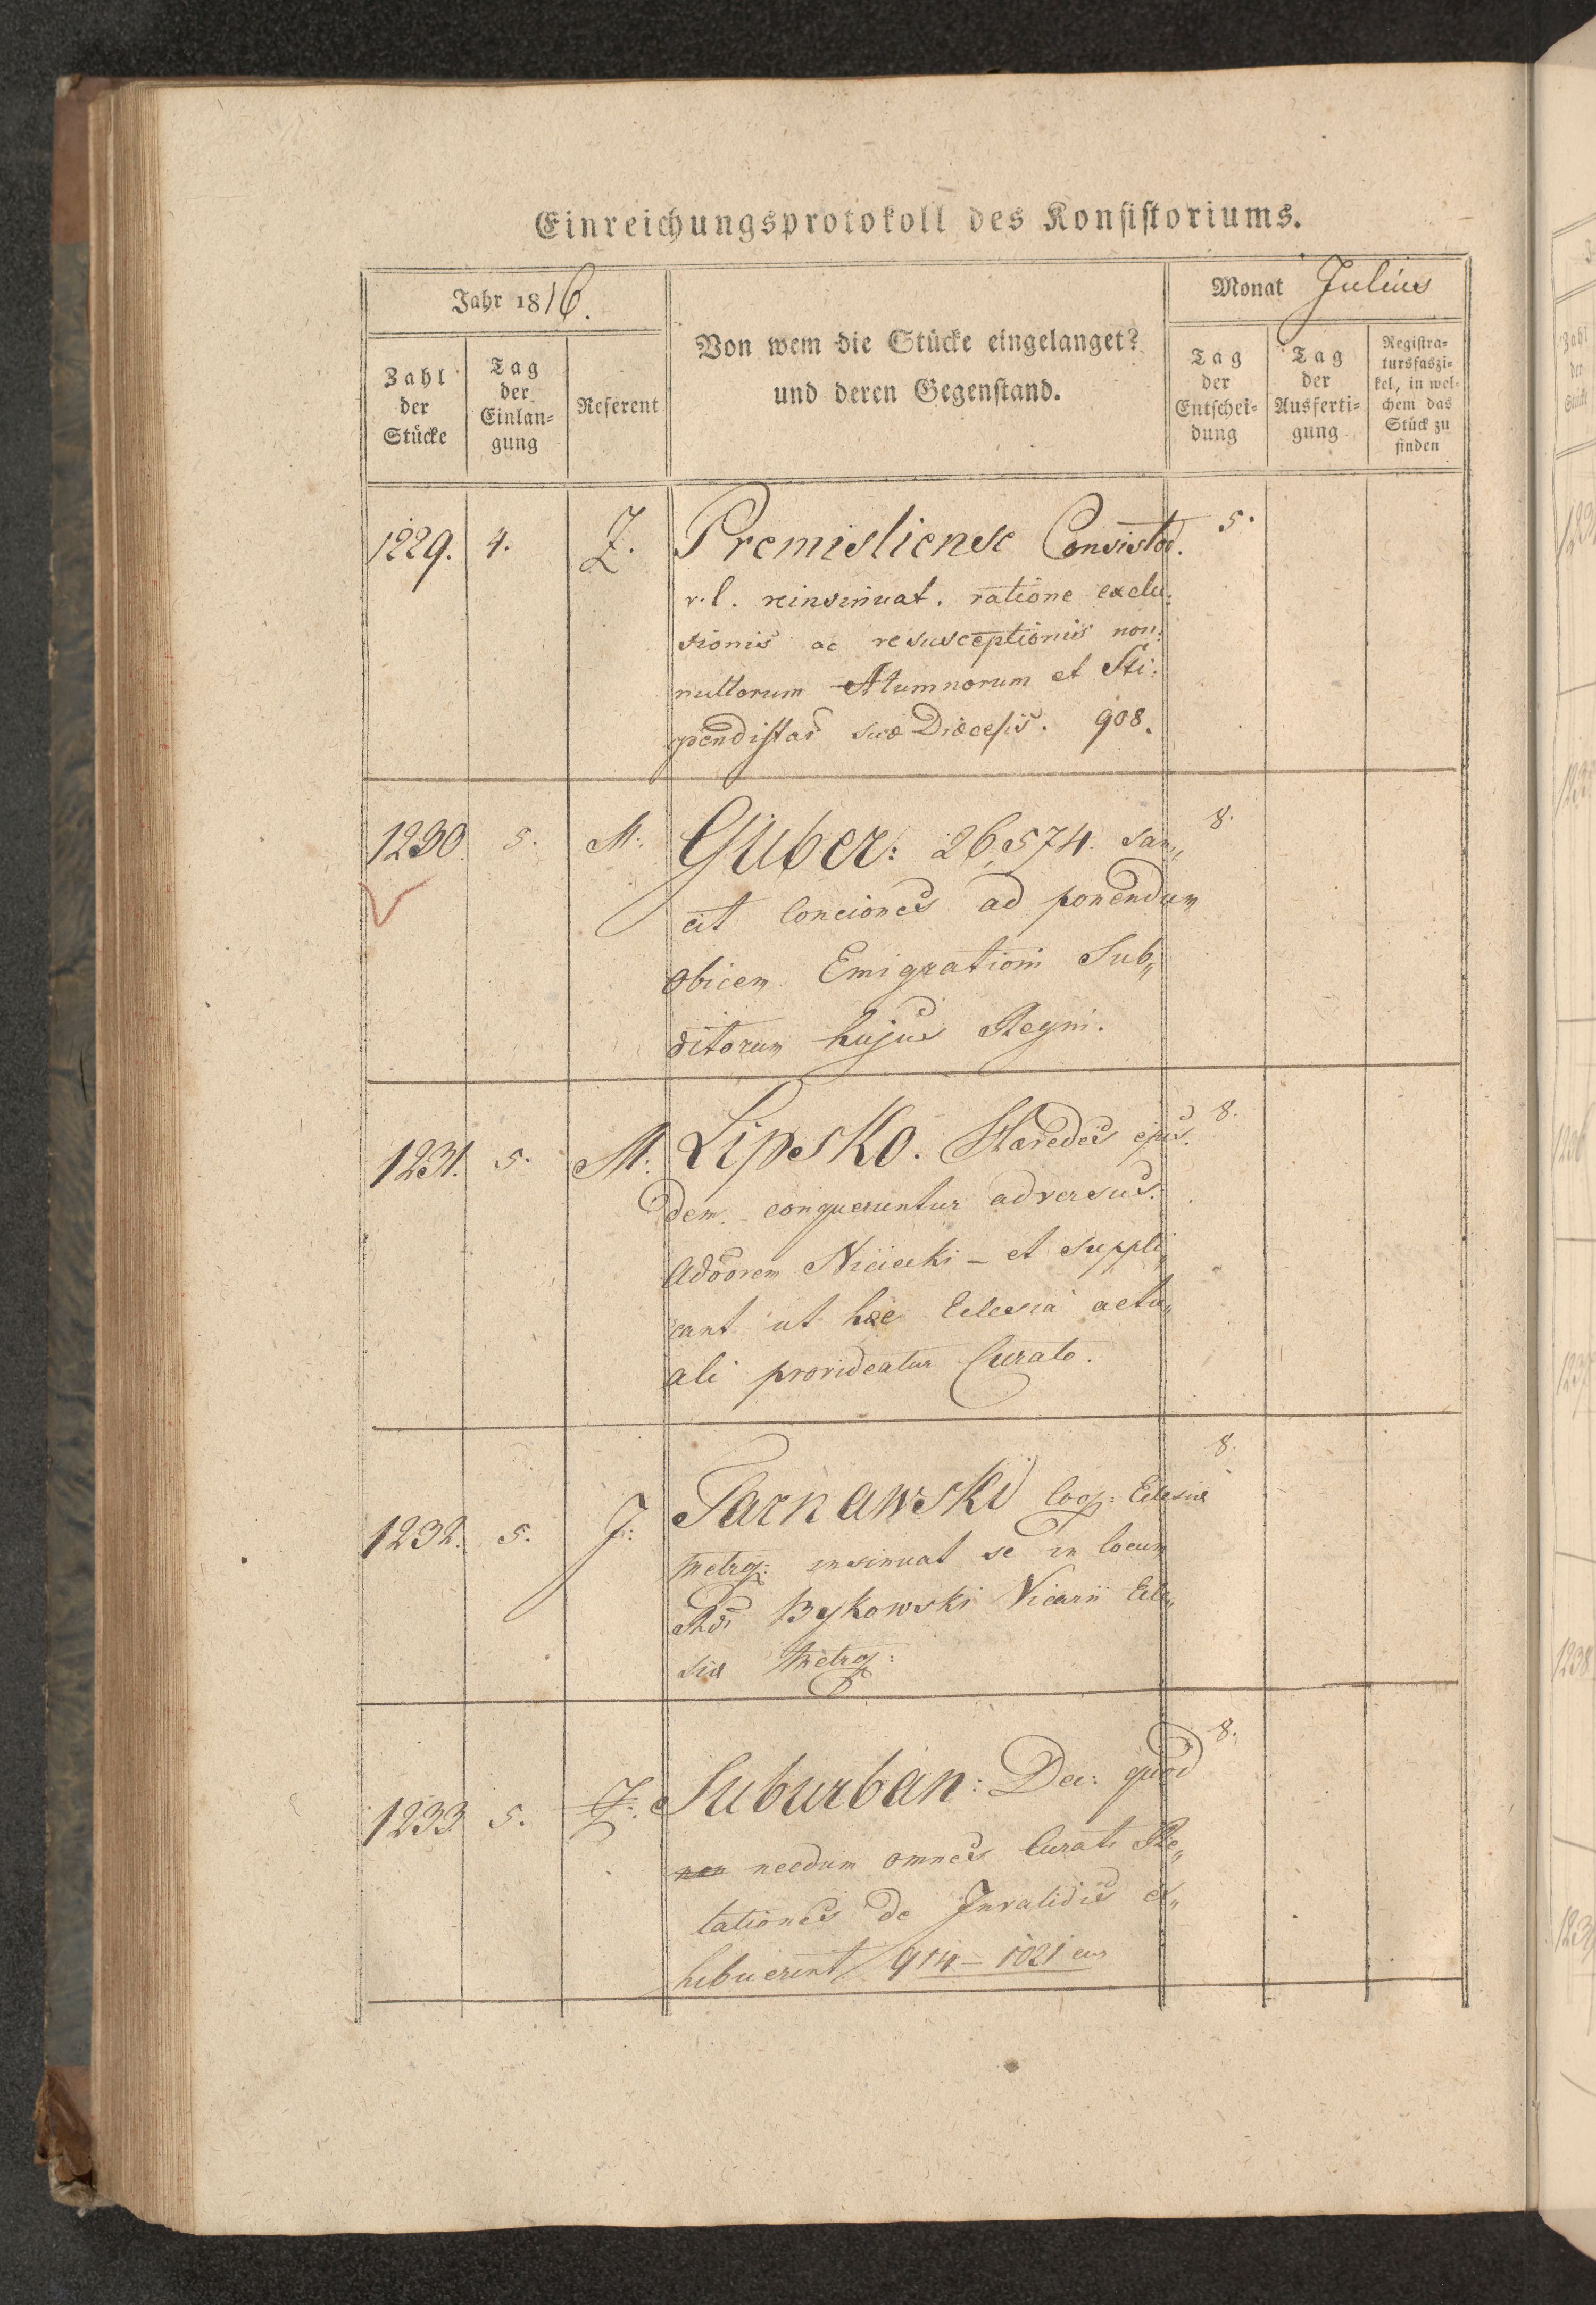 Einreichungsprotokoll des Konsistoriums.
Jahr 1816.
Monat Julius
Zahl der Stücke
Tag der Einlan=gung
Referent
Von wem die Stücke eingelanget?
und deren Gegenstand.
Tag der Entschei=dung
Tag der Ausferti=gung
Registra=tursfaszi=kel, in wel=chem das Stück zu finden
1229. 4. Z. Premisliense Consistor. 5.
r. l. reinsinuat. ratione exclu:
sionis ac resusceptionis non:
nullorum Alumnorum et Sti:
pendistar suæ Diœcesis. 908.
1230. 5. M: Guber: 26,574. San„ 8.
cit Conciones ad ponendum
Obicem Emigrationi Sub„
ditorum hujus Regni.
1231. 5. M: Lipsko. Haredes ejus. 8.
dem conqueruntur adversus
Adorem Niciecki – et suppli„
cant ut hæc Eclesia actu„
ali provideatur Curato.
1232. 5. J: Tarnawski Coop: Eclesiæ 8.
Metrop: insinuat se in locum
Rdi Bykowski Vicarii Ecle„
siæ Metrop:
1233 5. Z. Suburban: Dec: quod 8.
non necdum omnes Curati Re„
lationes de Invalidis ex„
hibuerint / 914 – 1021 eus